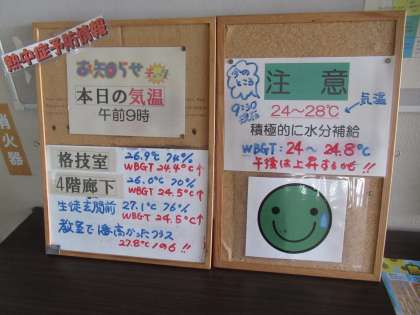 熱中症予防情報
お知らせ
本日の気温
午前9時
格技室 26.9℃ 74%
WBGT 24.4℃↑
4階廊下 26.0℃ 70%
WBGT 24.5℃↑
生徒玄関前 27.1℃ 76%
WBGT 24.5℃↑
教室で1番高かったクラス
27.8℃
消火器
今のところ
注意
9:30
現在
24~28℃
気温
積極的に水分補給
WBGT:24~24.8℃
午後は上昇するかも!!